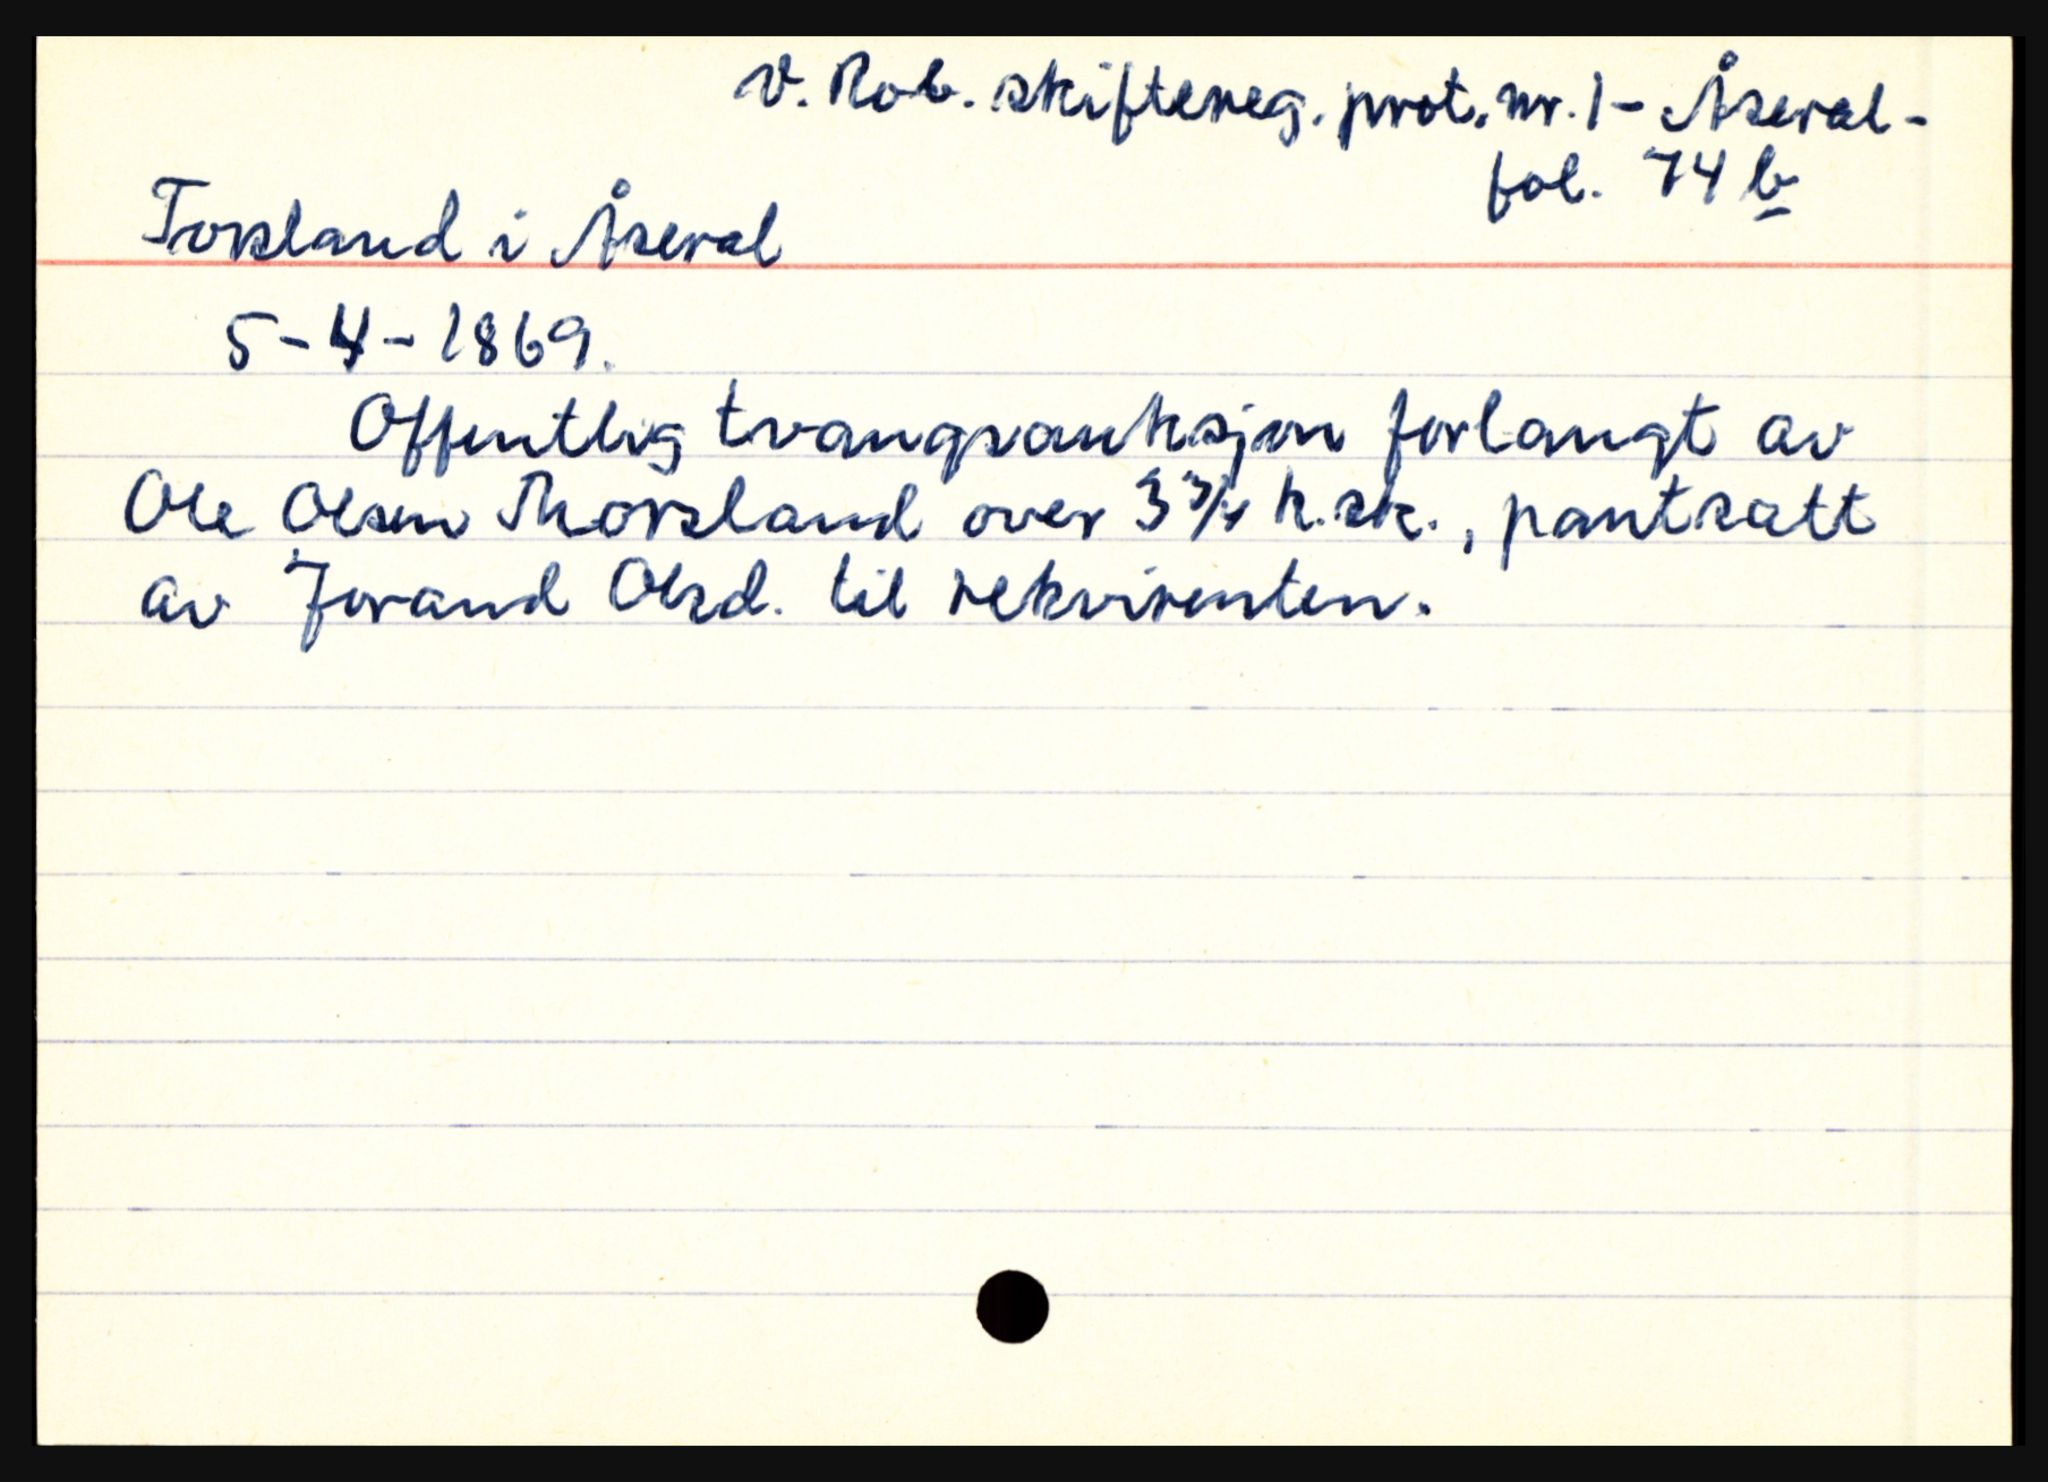 V. Rob. skiftereg. prot. nr. 1 - Åseral -
fol. 74 b
Torsland i Åseral
5-4-1869.
Offentlig tvangsauksjon forlangt av
Ole Olsen Thorsland over 3 3/4 h.sk., pantsatt
av Jorand Olsd. til rekvirenten.